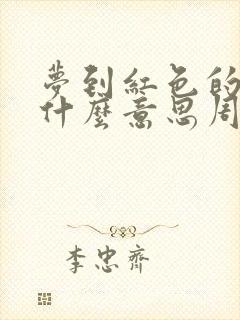 夢到紅色的
什麼意思周
李忠齊